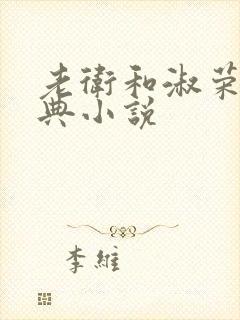 老衛和淑荣
典小説
李維